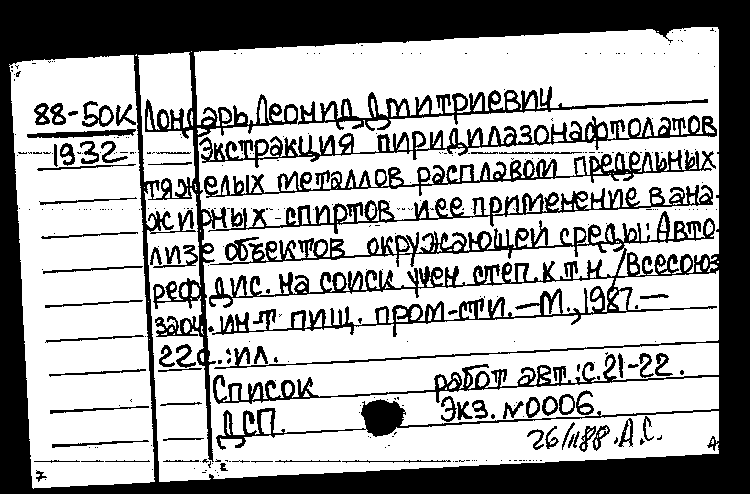 88-50К Лондарь, Леонид Дмитриевич.
1932 Экстракция пиридилазонафтолатов
тяжелых металлов расплавом предельных
жирных спиртов и ее применение в ана-
лизе объектов окружающей среды: Авто-
реф. дис. на соиск. учен. степ. к.т.н. / Всесоюз.
заоч. ин-т пищ. пром-сти. — М., 1987. —
22 с.: ил.
Список работ авт.: с. 21-22.
ДСП. Экз. №0006.
26/188. А.С.